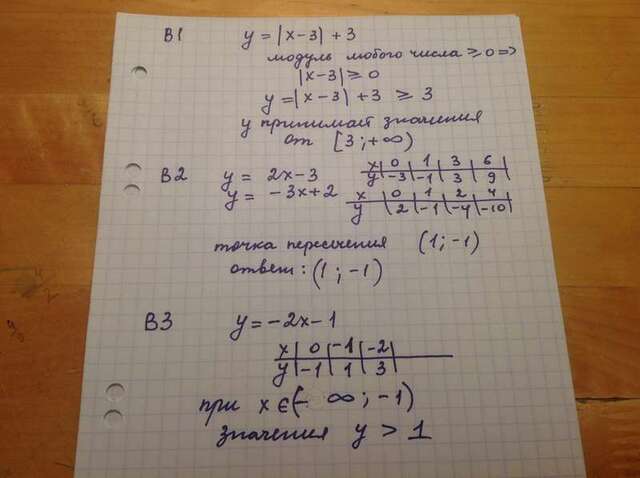 В1 y = |x-3| + 3
модуль любого числа ≥ 0 =>
|x-3| ≥ 0
y = |x-3| + 3 ≥ 3
y принимает значения
от [3; +∞)
В2 y = 2x-3
x 0 1 3 6
y -3 -1 3 9
y = -3x+2
x 0 1 2 4
y 2 -1 -4 -10
точка пересечения (1; -1)
ответ: (1; -1)
В3 y = -2x-1
x 0 -1 -2
y -1 1 3
при x ∈ (-∞; -1)
значения y > 1